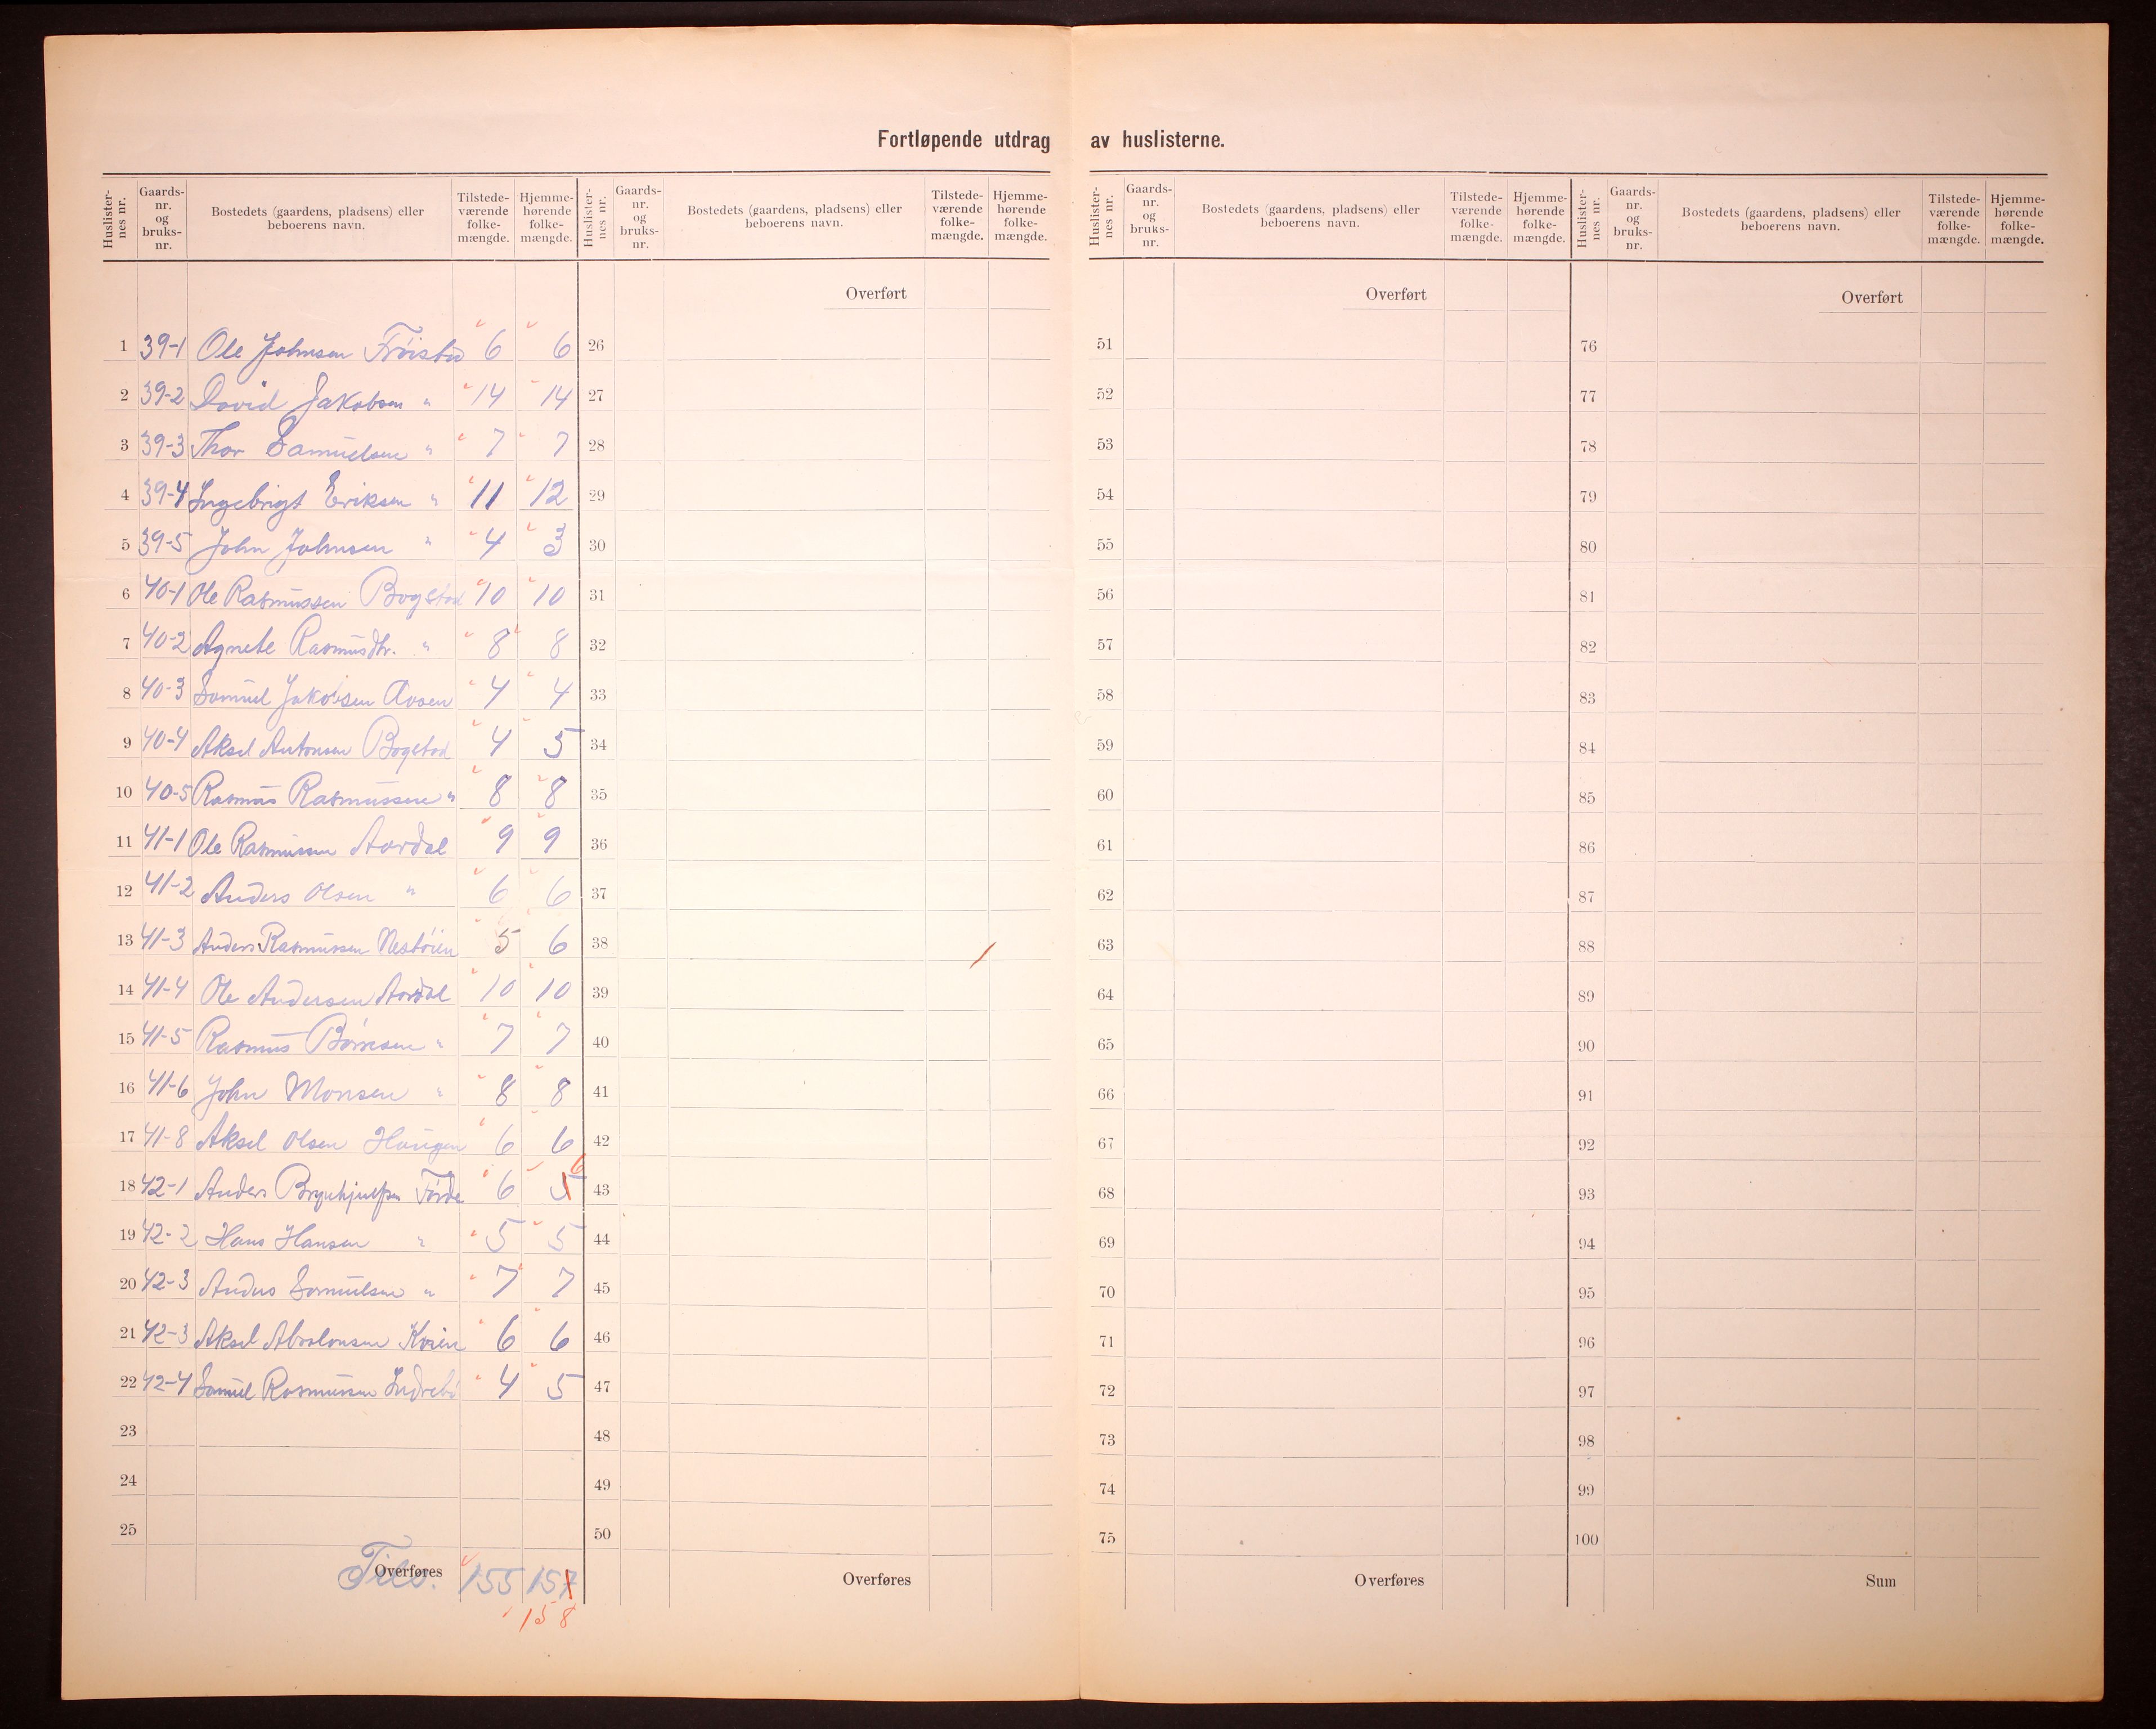 Fortløpende utdrag av huslisterne.
Huslister-nes nr. Gaards-nr. og bruks-nr. Bostedets (gaardens, pladsens) eller beboerens navn. Tilstede-værende folke-mængde. Hjemme-hørende folke-mængde.
Overført
1 39-1 Ole Johnsen Frøistad 6 6
2 39-2 David Jakobsen " 14 14
3 39-3 Thor Samuelsen " 7 7
4 39-4 Ingebrigt Eriksen " 11 12
5 39-5 John Johnsen " 4 3
6 40-1 Ole Rasmussen Bogstad 10 10
7 40-2 Agnete Rasmusdtr. " 8 8
8 40-3 Samuel Jakobsen 4 4
9 40-4 Aksel Antonsen Bogstad 4 5
10 40-5 Rasmus Rasmussen " 8 8
11 41-1 Ole Rasmussen Aardal 9 9
12 41-2 Anders Olsen " 6 6
13 41-3 Anders Rasmussen Nestøien 5 6
14 41-4 Ole Andersen Aardal 10 10
15 41-5 Rasmus Børresen " 7 7
16 41-6 John Monsen " 8 8
17 41-8 Aksel Olsen Haugen 6 6
18 42-1 Anders Brynhjulfsen Førde 6 5 6
19 42-2 Hans Hansen " 5 5
20 42-3 Anders Samuelsen " 7 7
21 42-3 Aksel Absalonsen Kvien 6 6
22 42-4 Samuel Rasmussen Indrebø 4 5
23
24
25
Overføres 155 157
158
Huslister-nes nr. Gaards-nr. og bruks-nr. Bostedets (gaardens, pladsens) eller beboerens navn. Tilstede-værende folke-mængde. Hjemme-hørende folke-mængde.
Overført
26
27
28
29
30
31
32
33
34
35
36
37
38
39
40
41
42
43
44
45
46
47
48
49
50
Overføres
Huslister-nes nr. Gaards-nr. og bruks-nr. Bostedets (gaardens, pladsens) eller beboerens navn. Tilstede-værende folke-mængde. Hjemme-hørende folke-mængde.
Overført
51
52
53
54
55
56
57
58
59
60
61
62
63
64
65
66
67
68
69
70
71
72
73
74
75
Overføres
Huslister-nes nr. Gaards-nr. og bruks-nr. Bostedets (gaardens, pladsens) eller beboerens navn. Tilstede-værende folke-mængde. Hjemme-hørende folke-mængde.
Overført
76
77
78
79
80
81
82
83
84
85
86
87
88
89
90
91
92
93
94
95
96
97
98
99
100
Sum